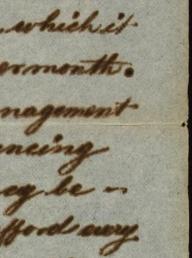 which it
er month.
nagement
encing
ey be -
fford any